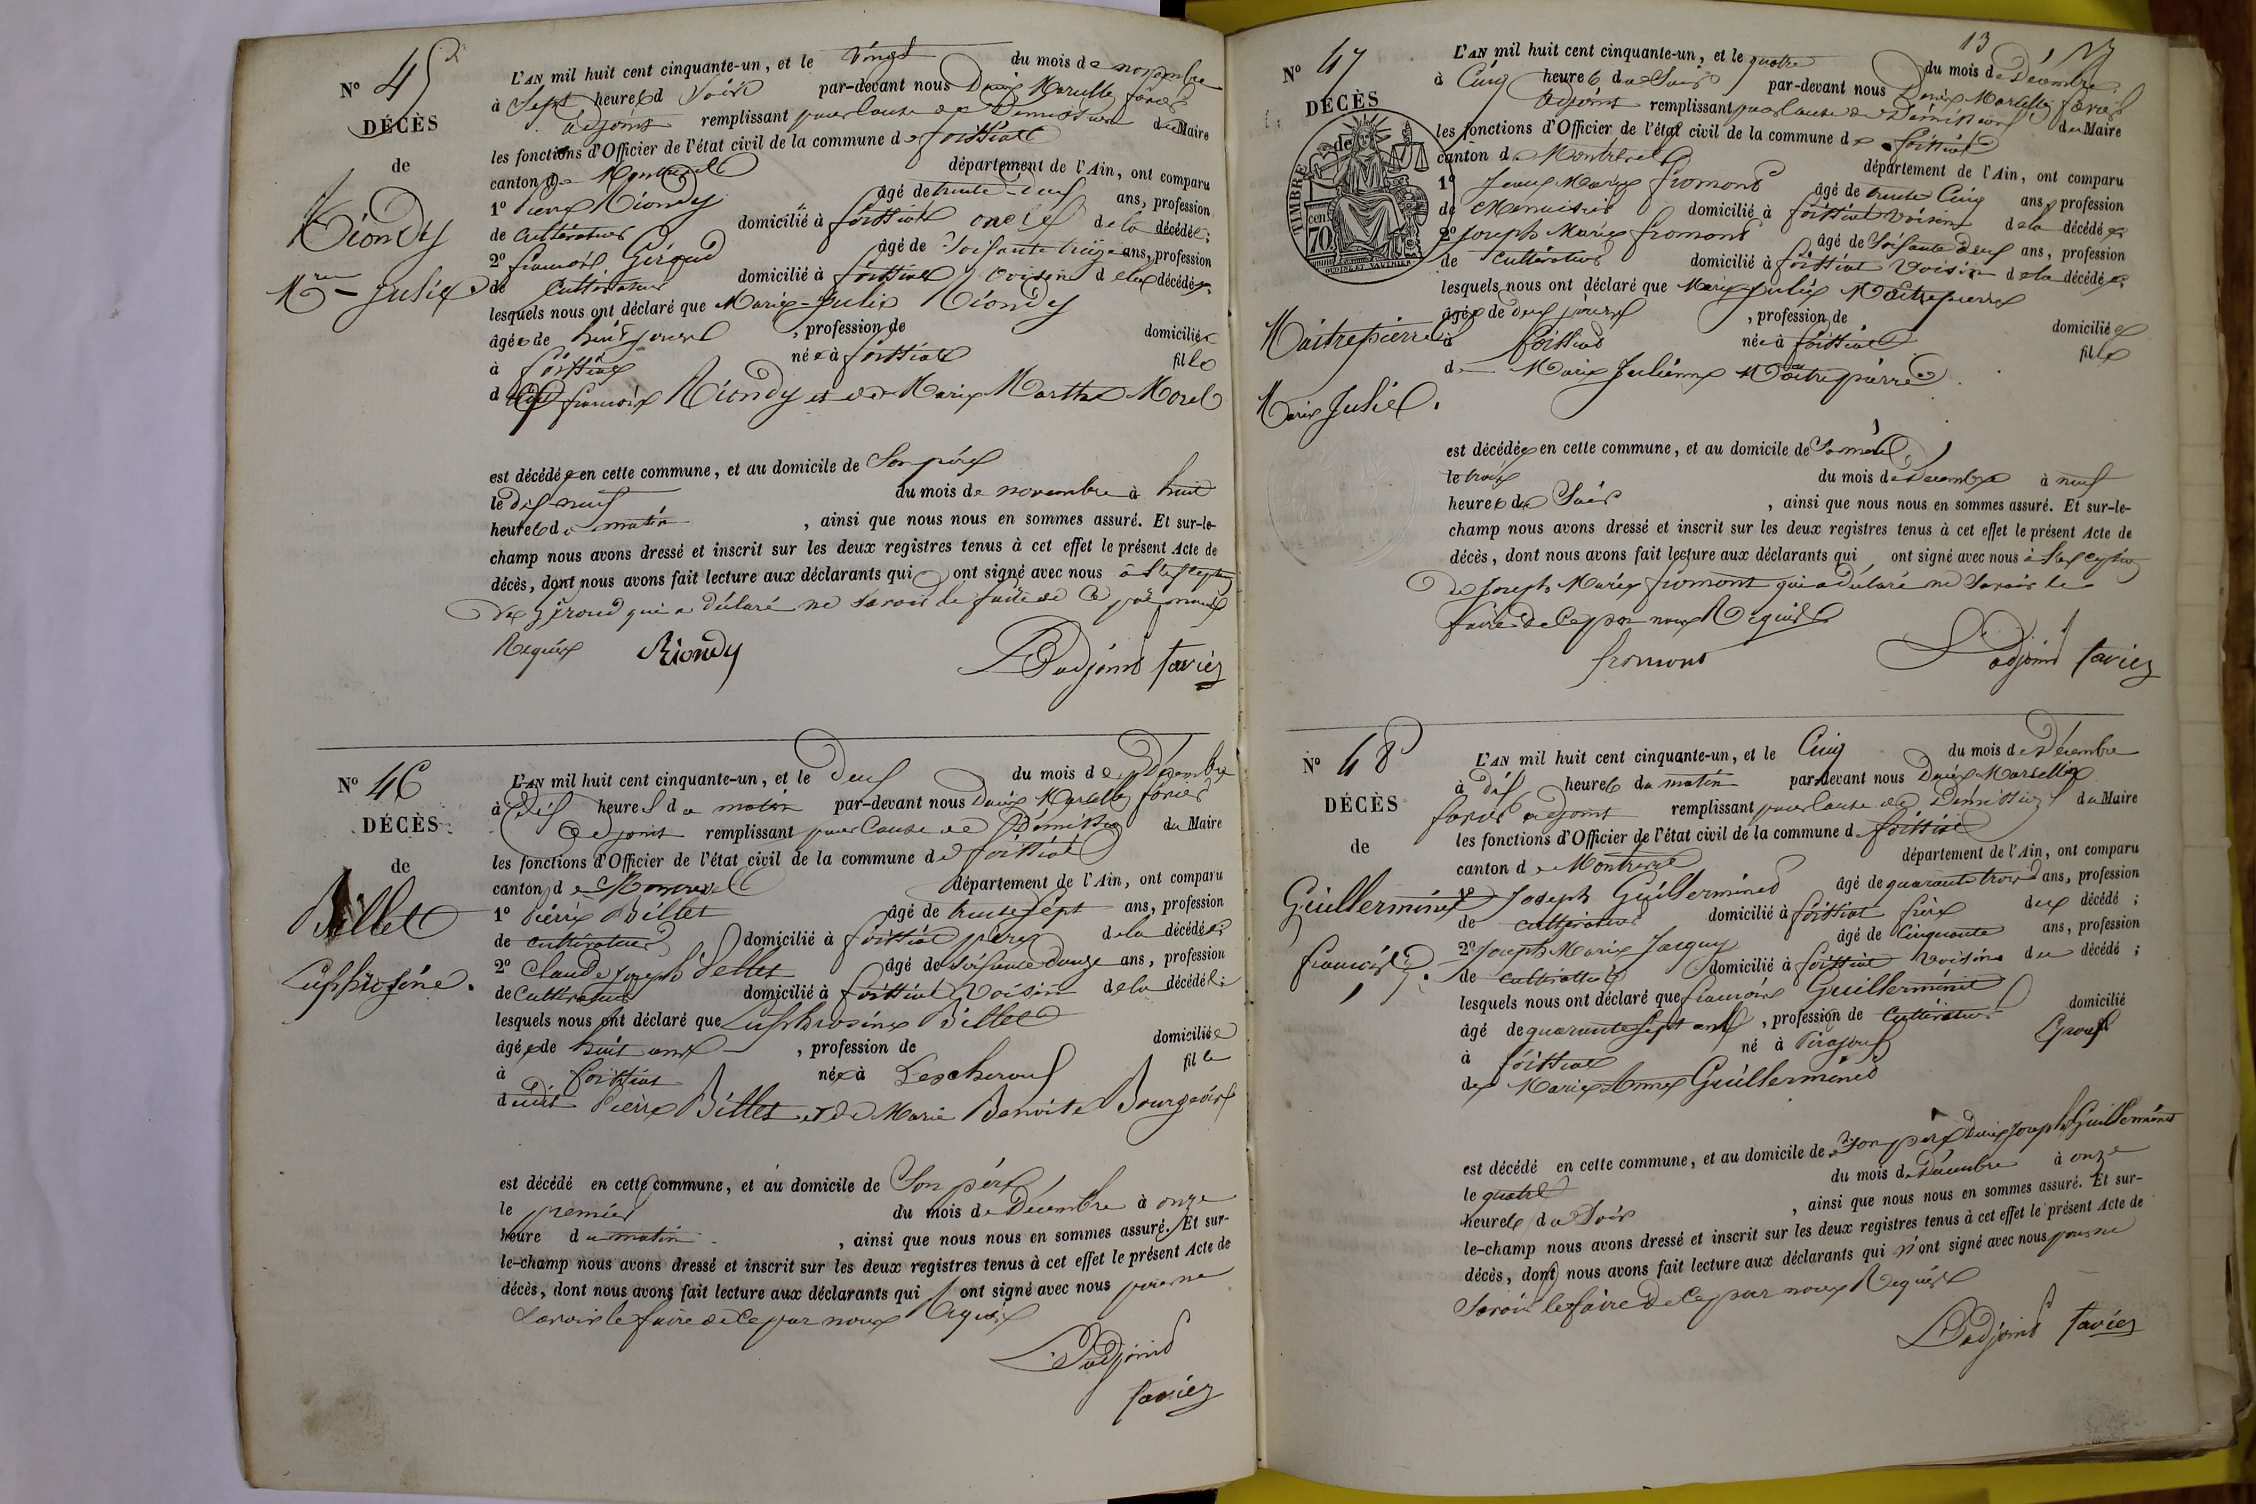 N° 45
DÉCÈS
de
Riondy
Mrie Julie
L'AN mil huit cent cinquante-un, et le vingt du mois de novembre
à Sept heures du Soir par-devant nous Denis Marcelle favier
adjoint remplissant pour Cause de Démission du Maire
les fonctions d'Officier de l'état civil de la commune de foissiat
canton de Montrevel département de l'Ain, ont comparu
1° Pierre Riondy âgé de trente-deux ans, profession
de cultivateur domicilié à foissiat oncle de la décédée;
2° françois Géroud âgé de Soixante treize ans, profession
de Cultivateur domicilié à foissiat voisin de la décédée;
lesquels nous ont déclaré que Marie-Julie Riondy
âgée de huit jours , profession de domiciliée
à foissiat née à foissiat fille
de françois Riondy et de Marie Marthe Morel
est décédée en cette commune, et au domicile de Son père
le dix neuf du mois de novembre à huit
heures du matin , ainsi que nous nous en sommes assuré. Et sur-le-
champ nous avons dressé et inscrit sur les deux registres tenus à cet effet le présent Acte de
décès, dont nous avons fait lecture aux déclarants qui ont signé avec nous à l'exception
de géroud qui a déclaré ne savoir le faire de Ce par nous
Requis Riondy L'adjoint favier
N° 46
DÉCÈS
de
Billet
Euphrosine.
L'AN mil huit cent cinquante-un, et le deux du mois de Décembre
à Dix heures du matin par-devant nous Denis Marcelle favier
adjoint remplissant pour Cause de Démission du Maire
les fonctions d'Officier de l'état civil de la commune de foissiat
canton de Montrevel département de l'Ain, ont comparu
1° Pierre Billet âgé de trente sept ans, profession
de cultivateur domicilié à foissiat père de la décédée;
2° Claude Joseph âgé de soixante douze ans, profession
de Cultivateur domicilié à foissiat voisin de la décédée;
lesquels nous ont déclaré que Euphrosine Billet
âgée de huit ans , profession de domiciliée
à foissiat née à Lescheroux fille
dudit Pierre Billet et de Marie Benoite Bourgeois
est décédé en cette commune, et au domicile de Son père
le premier du mois de Décembre à onze
heure du matin , ainsi que nous nous en sommes assuré. Et sur-
le-champ nous avons dressé et inscrit sur les deux registres tenus à cet effet le présent Acte de
décès, dont nous avons fait lecture aux déclarants qui n'ont signé avec nous pour ne
savoir le faire de Ce par nous Requis
L'adjoint
favier
13
N° 47
DÉCÈS
de
TIMBRE
70 cent
Maitrepierre
Marie Julie.
L'AN mil huit cent cinquante-un, et le quatre du mois de Décembre
à Cinq heures du Soir par-devant nous Denis Marcelle favier
adjoint remplissant pour Cause de Démission du Maire
les fonctions d'Officier de l'état civil de la commune de foissiat
canton de Montrevel département de l'Ain, ont comparu
1° Jean Marie fromont âgé de trente Cinq ans, profession
de Menuisier domicilié à foissiat voisin de la décédée;
2° Joseph Marie fromont âgé de Soixante deux ans, profession
de cultivateur domicilié à foissiat voisin de la décédée;
lesquels nous ont déclaré que Marie-Julie Maitrepierre
âgée de deux jours , profession de domiciliée
à foissiat née à foissiat fille
de Marie Julienne Maitrepierre
est décédée en cette commune, et au domicile de Sa mère
le trois du mois de Décembre à neuf
heures du Soir , ainsi que nous nous en sommes assuré. Et sur-le-
champ nous avons dressé et inscrit sur les deux registres tenus à cet effet le présent Acte de
décès, dont nous avons fait lecture aux déclarants qui ont signé avec nous à l'exception
de Joseph Marie fromont qui a déclaré ne Savoir le
faire de Ce par nous Requis
fromont L'adjoint favier
N° 48
DÉCÈS
de
Guillerminet
françois.
L'AN mil huit cent cinquante-un, et le Cinq du mois de Décembre
à dix heures du matin par-devant nous Denis Marcelle
favier adjoint remplissant pour Cause de Démission du Maire
les fonctions d'Officier de l'état civil de la commune de foissiat
canton de Montrevel département de l'Ain, ont comparu
1° Joseph Guillerminet âgé de quarante trois ans, profession
de cultivateur domicilié à foissiat frère du décédé;
2° Joseph Marie Jacquy âgé de Cinquante ans, profession
de cultivateur domicilié à foissiat voisin du décédé;
lesquels nous ont déclaré que françois Guillerminet
âgé de quarante sept ans , profession de Cultivateur domicilié
à foissiat né à Pirajoux Epoux
de Marie Anne Guillerminet
est décédé en cette commune, et au domicile de Son père Denis Joseph Guillerminet
le quatre du mois de Décembre à onze
heures du Soir , ainsi que nous nous en sommes assuré. Et sur-
le-champ nous avons dressé et inscrit sur les deux registres tenus à cet effet le présent Acte de
décès, dont nous avons fait lecture aux déclarants qui n'ont signé avec nous pour ne
Savoir le faire de Ce par nous Requis
L'adjoint favier